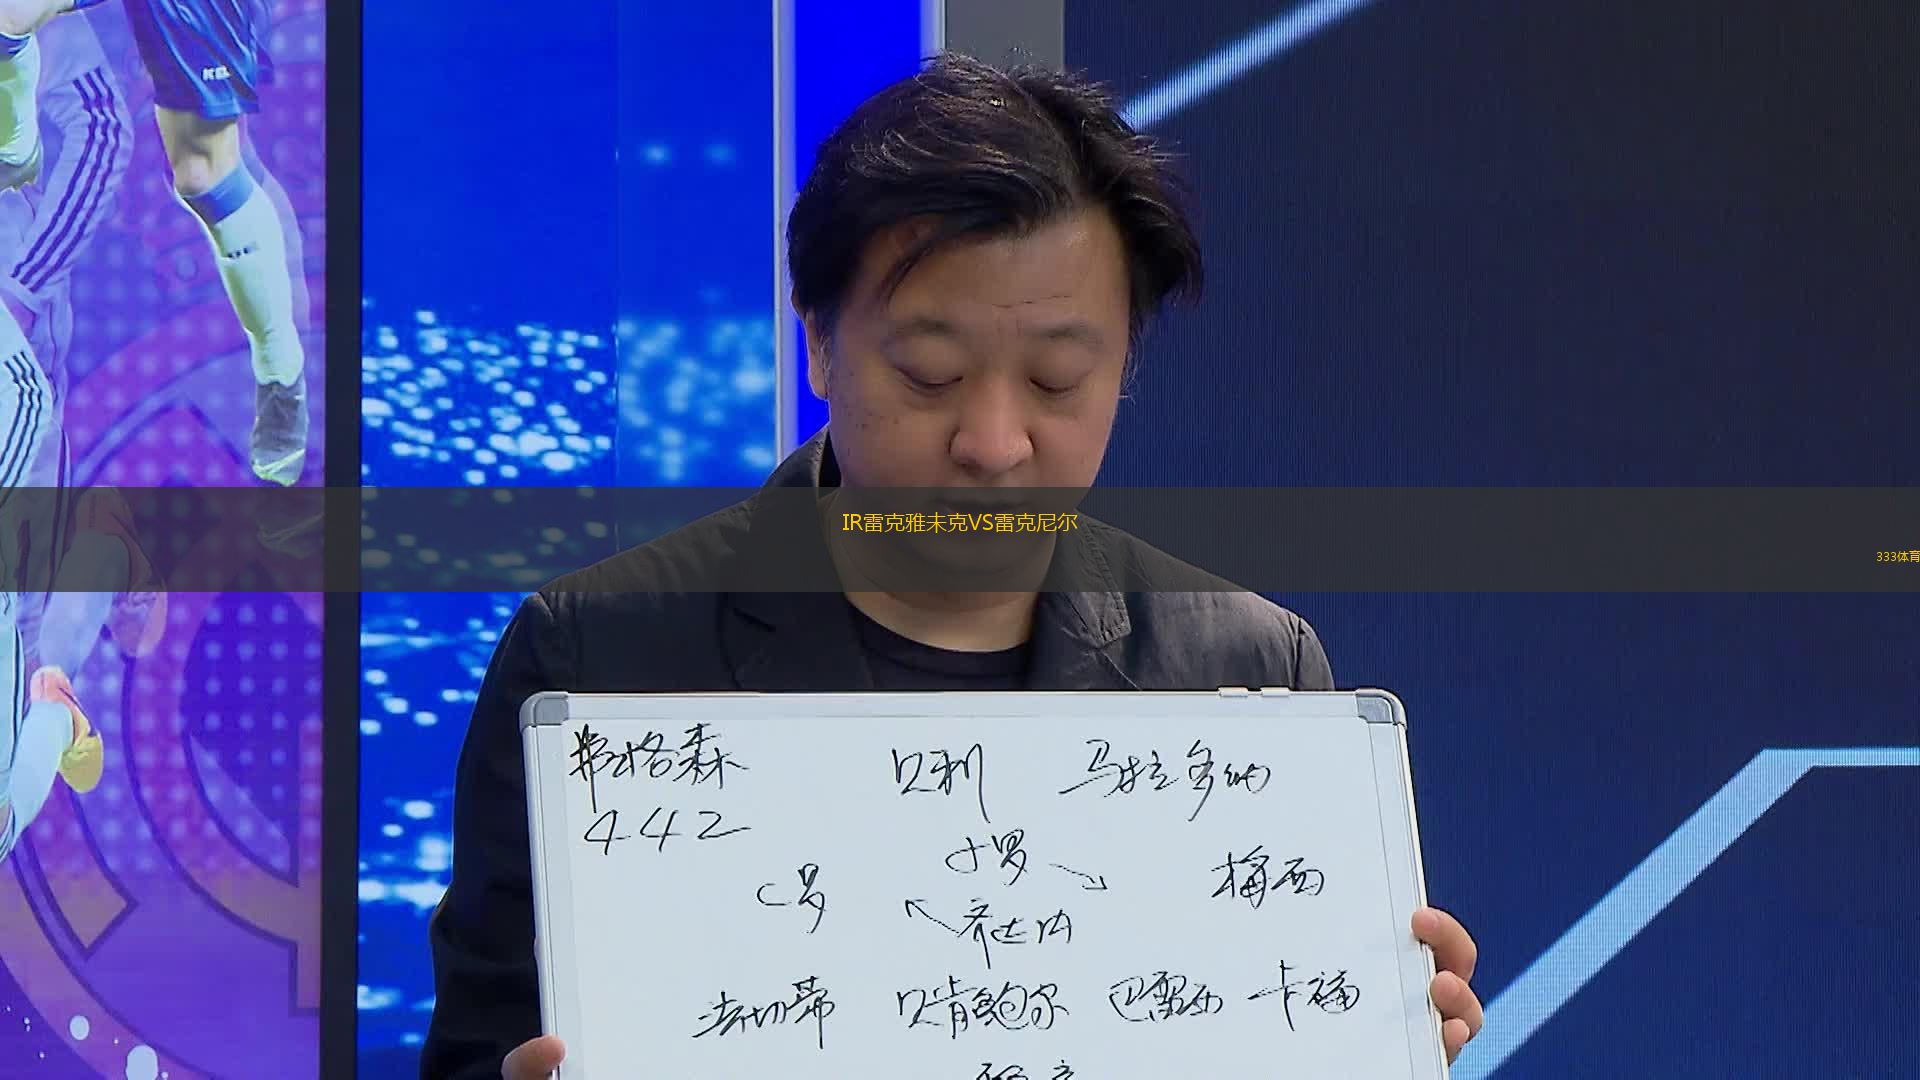 IR雷克雅未克VS雷克尼尔
333体育
弗格森 贝利 马拉多纳
442
小罗
C罗 梅西
齐达内
法切蒂 贝肯鲍尔 巴雷西 卡福